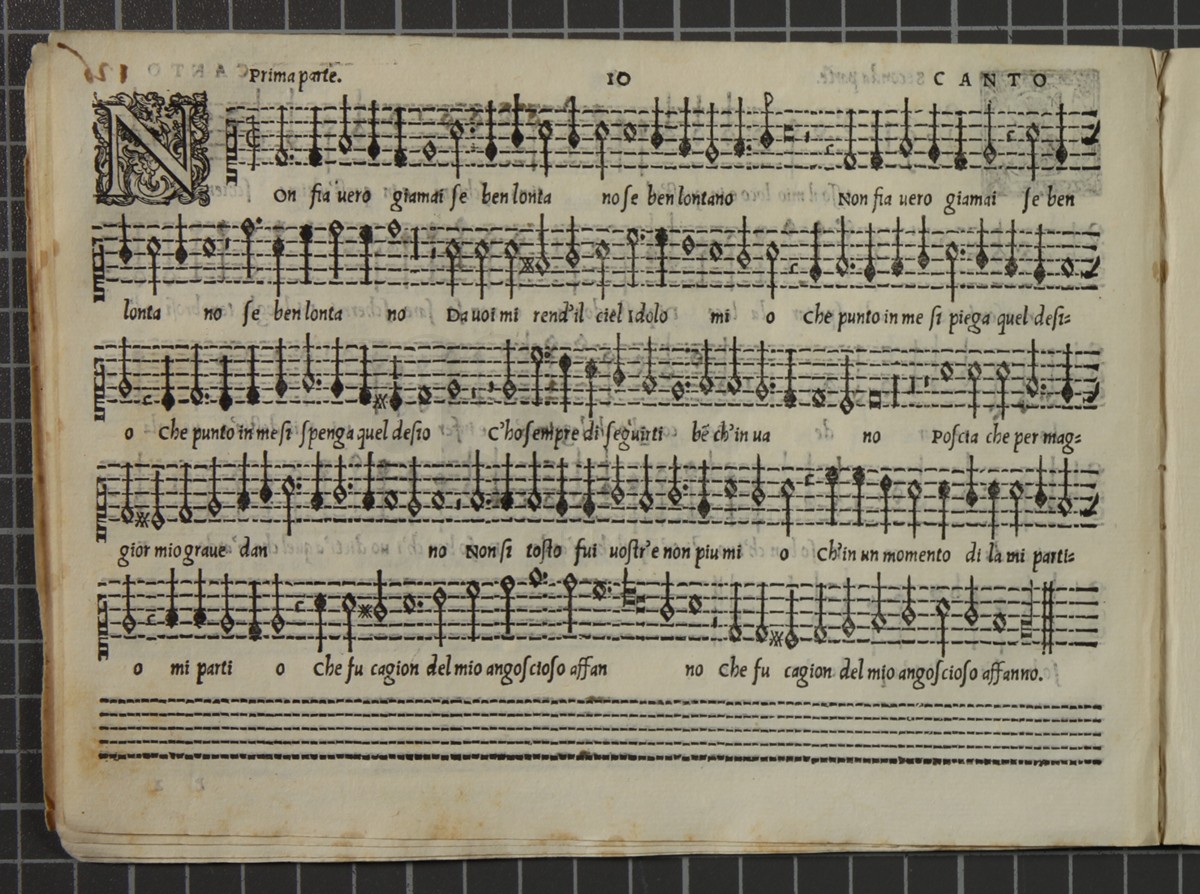 Prima parte. 10 CANTO
NOn fia uero giamai se ben lonta no se ben lontano Non fia uero giamai se ben
lonta no se ben lonta no Da uoi mi rend'il ciel Idolo mi o Che punto in me si piega quel desi=
o Che punto in me si spenga quel desio C'ho sempre di seguirti bẽ ch'in ua no Poscia che per mag=
gior mio graue dan no Non si tosto fui uostr'e non piu mi o Ch'in un momento di la mi parti=
o mi parti o Che fu cagion del mio angoscioso affan no Che fu cagion del mio angoscioso affanno.